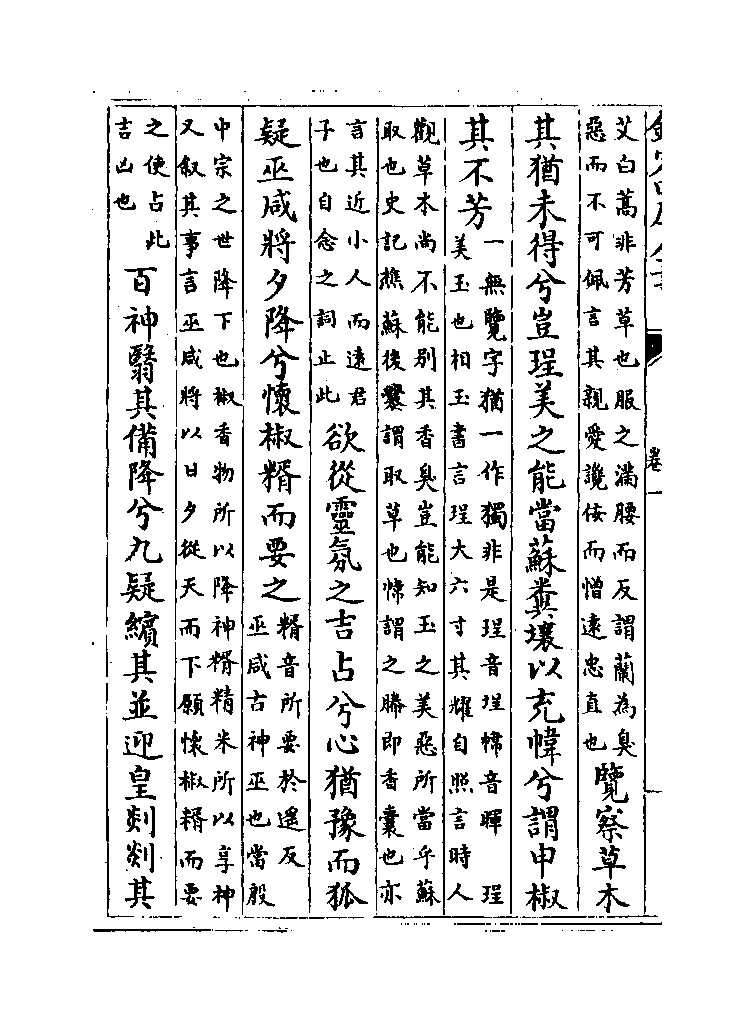 卷一
艾白蒿非芳草也服之滿腰而反謂蘭為臭
惡而不可佩言其親愛讒佞而憎遠忠直也
覽察草木
其猶未得兮豈珵美之能當蘇糞壤以充幃兮謂申椒
其不芳
一無覽字猶一作獨非是珵音埕幃音暉 珵
美玉也相玉書言珵大六寸其耀自照言時人
觀草木尚不能別其香臭豈能知玉之美惡所當乎蘇
取也史記樵蘇後爨謂取草也幃謂之幐即香囊也亦
言其近小人而遠君
子也自念之詞止此
欲從靈氛之吉占兮心猶豫而狐
疑巫咸將夕降兮懷椒糈而要之
糈音所要於遥反
巫咸古神巫也當殷
中宗之世降下也椒香物所以降神糈精米所以享神
又叙其事言巫咸將以日夕從天而下願懷椒糈而要
之使占此
吉凶也
百神翳其備降兮九疑繽其並迎皇剡剡其